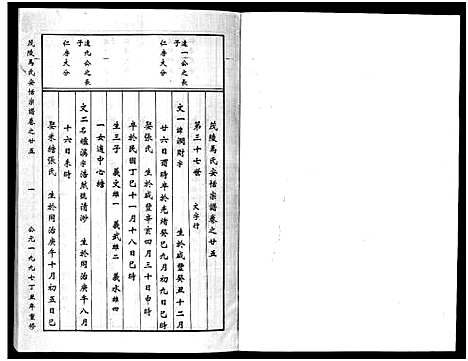 茂陵馬氏安恬宗譜卷之廿五
第三十七世　文字行
遠一公之長子
仁房大分
文一 諱潤財字　生於咸豐癸丑十二月
廿六日酉時卒於光緒癸巳九月初九日巳時
娶張氏　生於咸豐辛亥四月三十日申時
卒於民國丁巳十一月十八日巳時
生三子　義文雄一　義武雄二　義水雄四
一女適中心繞
遠九公之長子
仁房大分
文二 名爐漢字浩然號清渺　生於同治庚午八月
十六日未時
娶米糖張氏　生於同治庚午十月初五日巳時
茂陵馬氏安恬宗譜卷之廿五
一
公元一九九七丁丑年重修